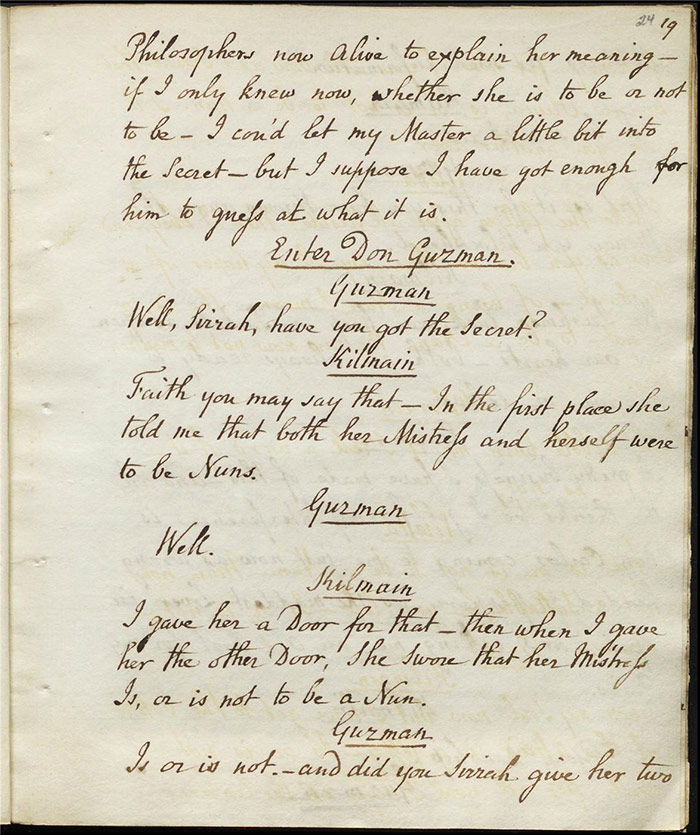 24 19
Philosophers now alive to explain her meaning —
if I only knew now, whether she is to be or not
to be — I cou'd let my Master a little bit into
the Secret — but I suppose I have got enough for
him to guess at what it is.
Enter Don Guzman.
Guzman
Well, Sirrah, have you got the Secret?
Kilmain
Faith you may say that — In the first place she
told me that both her Mistress and herself were
to be Nuns.
Guzman
Well.
Kilmain
I gave her a Door for that — then when I gave
her the other Door, She swore that her Mistress
Is, or is not to be a Nun.
Guzman
Is or is not. — and did you Sirrah give her two